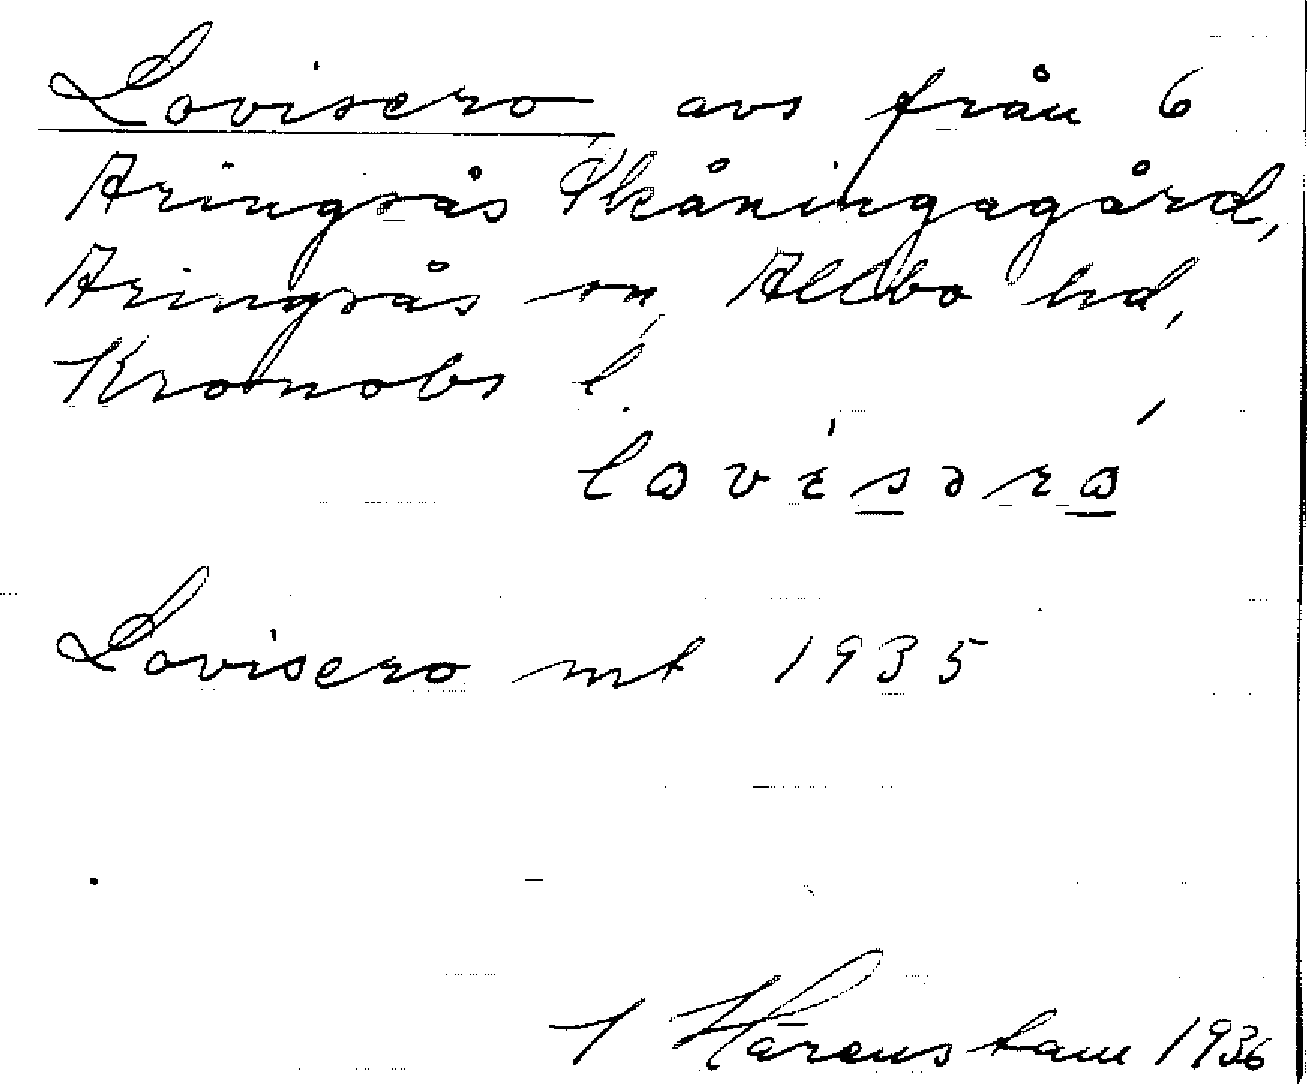 Lovisero avs från 6
Aringsås Skåningagård,
Aringsås sn, Allbo hd,
Kronobs l.
Lovisero mt 1935
Härenstam 1936